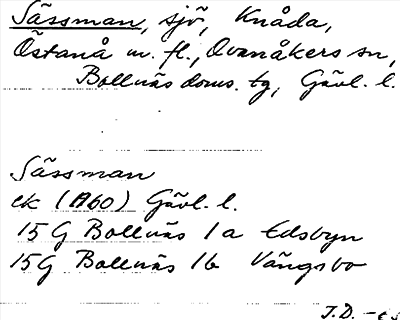 Sässman, sjö, Knåda,
Östanå m. fl., Ovanåkers sn,
Bollnäs doms. tg, Gävl. l.
Sässman
ek (1960) Gävl. l.
15 G Bollnäs 1 a Edsbyn
15 G Bollnäs 1b Vängsbo
J.D. -